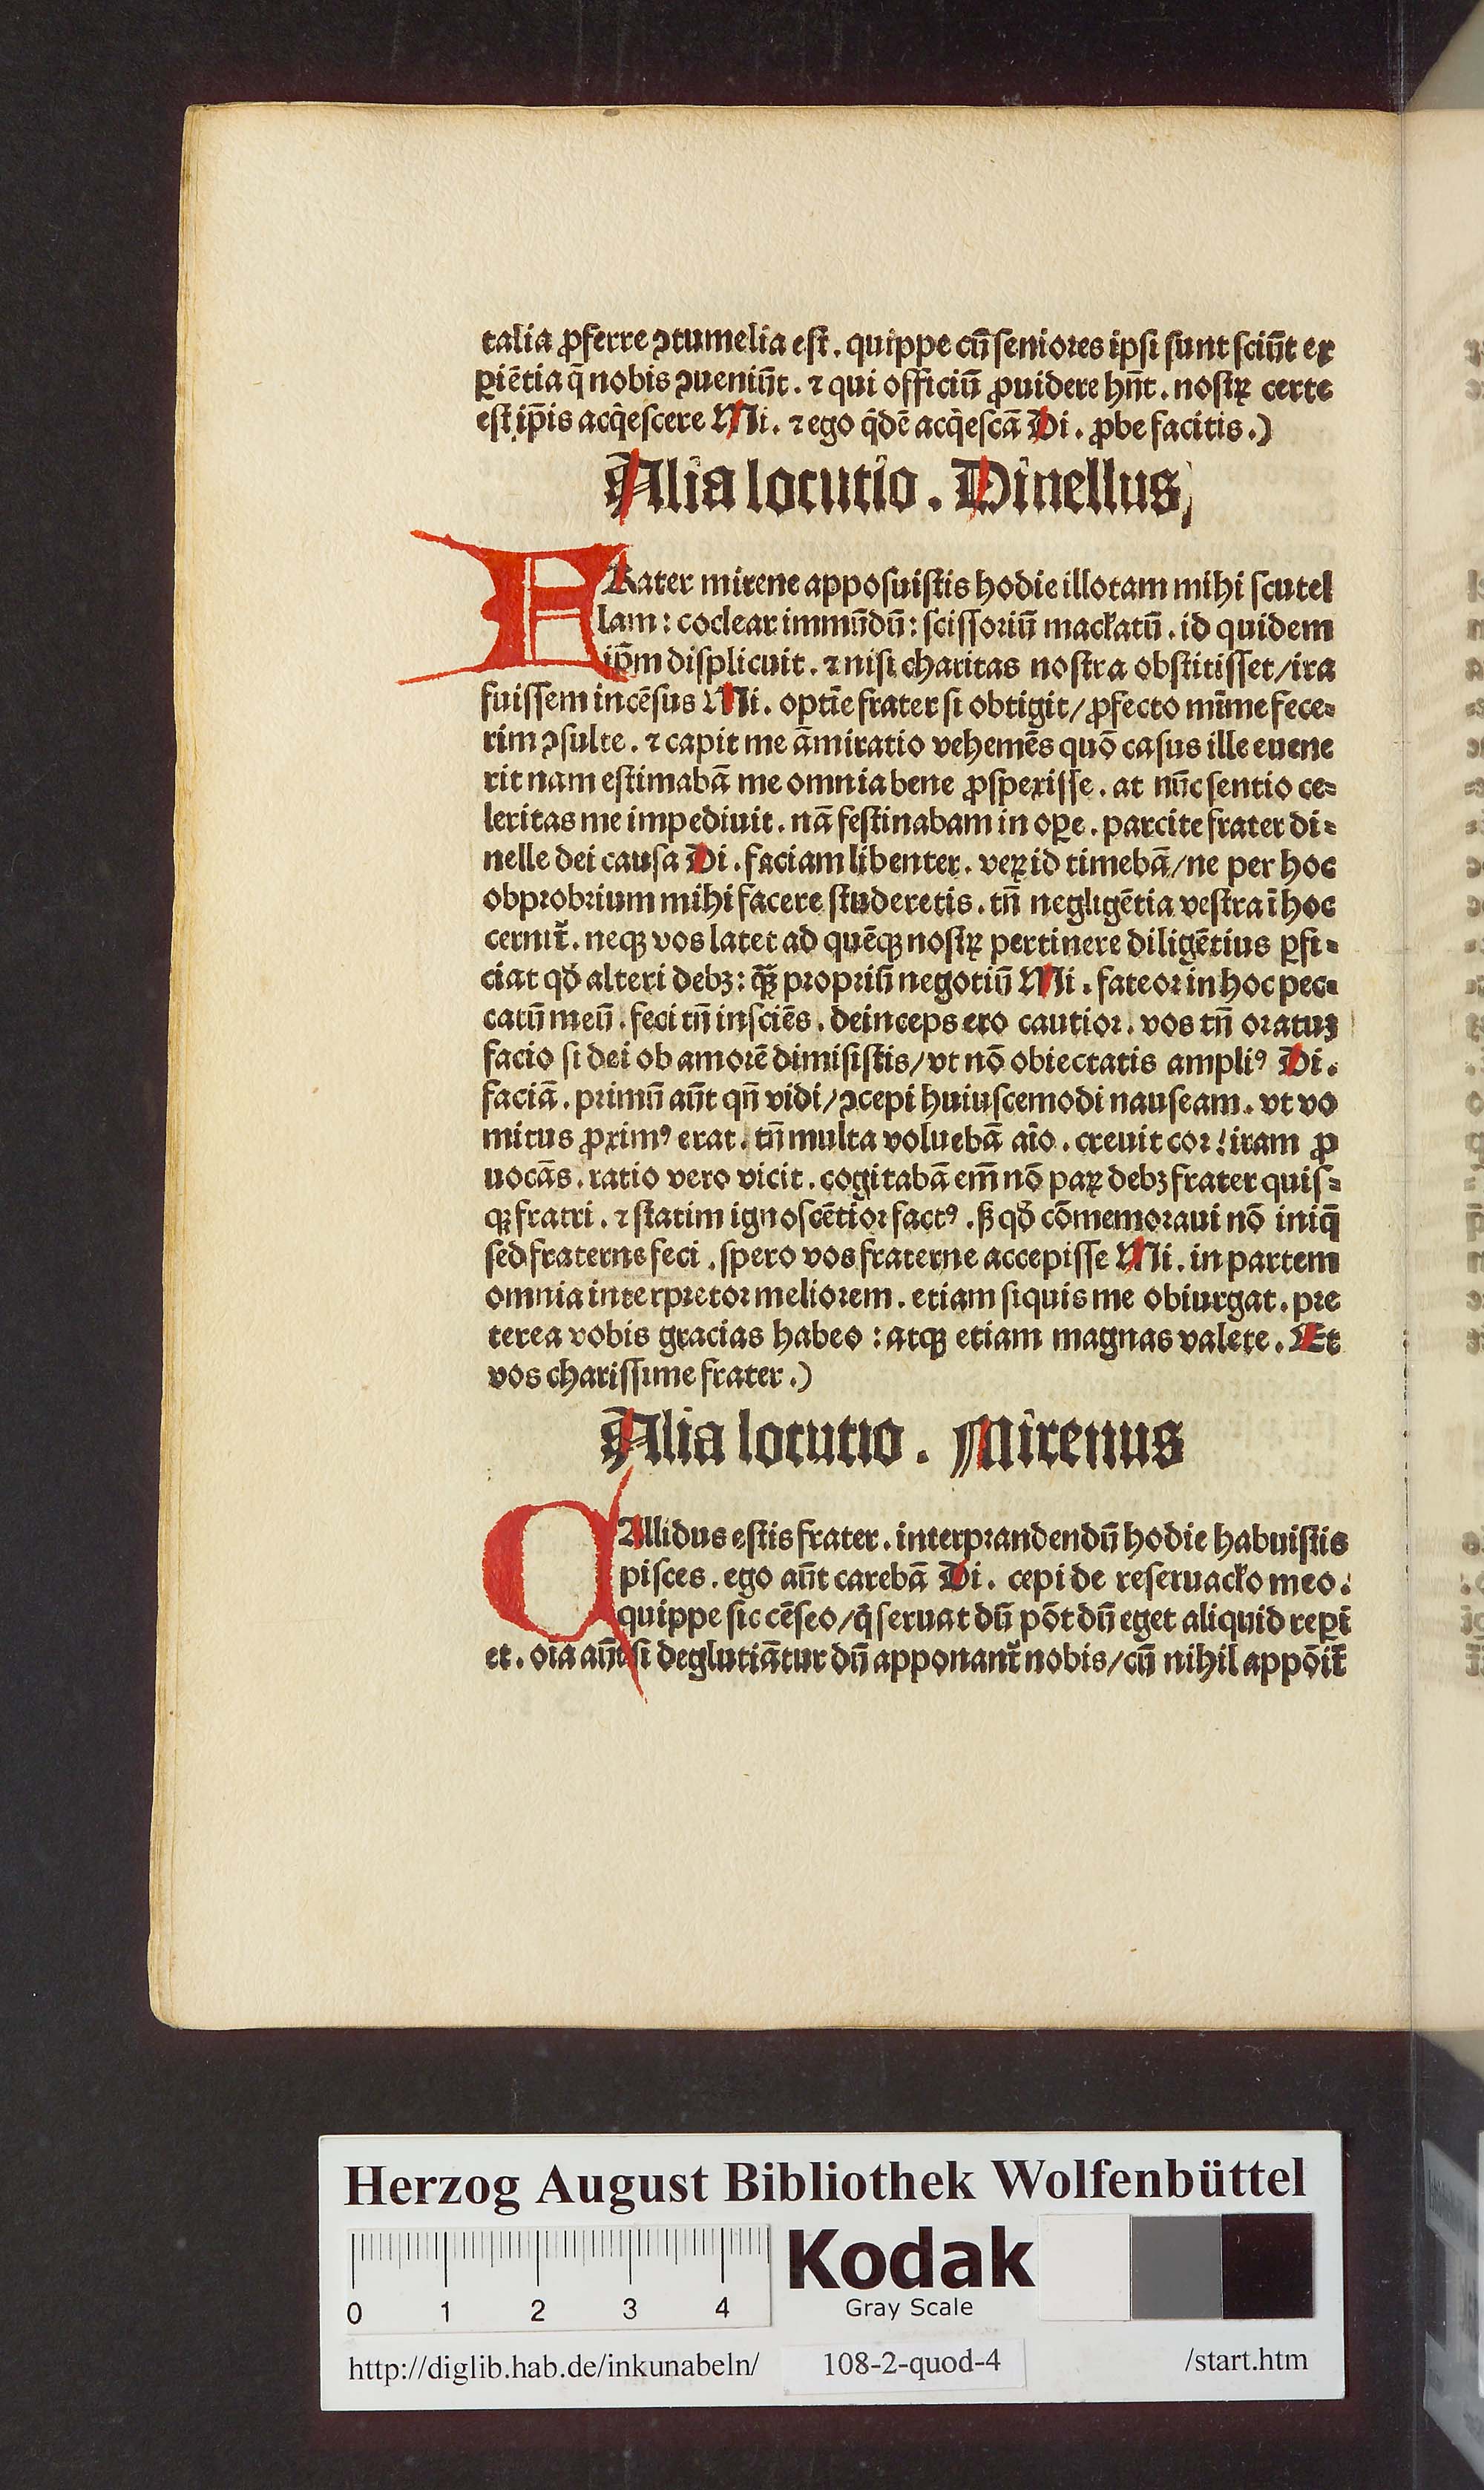 talia ꝓferre ↄtumelia est. quippe cū seniores ipsi sunt sciūt ex
ꝑiētia q̄ nobis ↄueniūt. ⁊ qui officiū ꝓuidere hn̄t. nostꝝ certe
est ip̄is acq̇escere Mi. ⁊ ego q̇dē acq̇escā Di. ꝓbe facitis.)
Alia locutio. Dinellus,
FRater mirene apposuistis hodie illotam mihi scutel
lam: coclear immūdū: scissoriū macl̄atū. id quidem
ip̄m displicuit. ⁊ nisi charitas nostra obstitisset/ira
fuissem incēsus Mi. optīe frater si obtigit/ꝓfecto mīme fece⸗
rim ↄsulte. ⁊ capit me āmiratio vehemēs quō casus ille euene
rit nam estimabā me omnia bene ꝓspexisse. at nūc sentio ce⸗
leritas me impediuit. nā festinabam in oꝑe. parcite frater di⸗
nelle dei causa Di. faciam libenter. veꝝ id timebā/ne per hoc
obprobrium mihi facere studeretis. tn̄ negligētia vestra ī hoc
cernit᷑. neqꝫ vos latet ad quēqꝫ nostꝝ pertinere diligētius ꝑfi⸗
ciat qd̄ alteri debꝫ: qꝫ̄ propriū negotiū Mi. fateor in hoc pec⸗
catū meū. feci tn̄ insciēs. deinceps ero cautior. vos tn̄ oratuꝫ
facio si dei ob amorē dimisistis/vt nō obiectatis ampliꝰ Di.
faciā. primū aūt qn̄ vidi/ↄcepi huiuscemodi nauseam. vt vo
mitus ꝓximꝰ erat. tn̄ multa voluebā aīo. creuit cor! iram ꝓ
uocās. ratio vero vicit. cogitabā em̄ nō paꝝ debꝫ frater quis⸗
qꝫ fratri. ⁊ statim ignoscētior factꝰ. ꝭ qd̄ cōmemoraui nō iniq̄
sed fraterne feci. spero vos fraterne accepisse Mi. in partem
omnia interpretor meliorem. etiam siquis me obiurgat. pre
terea vobis gracias habeo: atqꝫ etiam magnas valete. Et
vos charissime frater.)
Alia locutio. Mirenus
CAllidus estis frater. inter prandendū hodie habuistis
pisces. ego aūt carebā Di. cepi de reseruacl̄o meo.
quippe sic cēseo/q̇ seruat dū pōt dū eget aliquid reꝑi
et. oīa aūt si deglutiātur dū apponant᷑ nobis/cū nihil appōit᷑
Herzog August Bibliothek Wolfenbüttel
0 1 2 3 4
Kodak
Gray Scale
http://diglib.hab.de/inkunabeln/ 108-2-quod-4 /start.htm